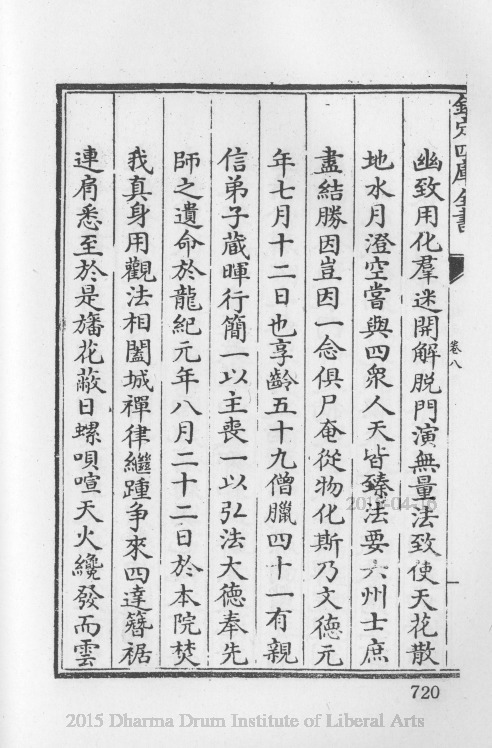 欽定四庫全書
卷八
幽致用化羣迷開解脱門演無量法致使天花散
地水月澄空嘗與四衆人天皆臻法要六州士庶
盡結勝因豈因一念俱尸奄從物化斯乃文德元
年七月十二日也享齡五十九僧臘四十一有親
信弟子藏暉行簡一以主喪一以弘法大德奉先
師之遺命於龍紀元年八月二十二日於本院焚
我真身用觀法相闔城禪律繼踵争來四達簪裾
連肩悉至於是旛花蔽日螺唄喧天火纔發而雲
720
2015 Dharma Drum Institute of Liberal Arts